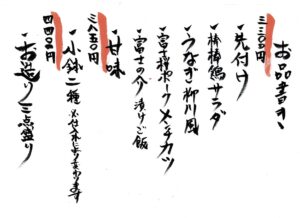 お品書き
三三〇〇円
・先付け
・棒棒鶏サラダ
・うなぎ柳川風
・富士桜ポークメンチカツ
・富士の介漬けご飯
・甘味
三八五〇円
・小鉢二種 ※仕入れにより変わります
四四〇〇円
・お造り三点盛り